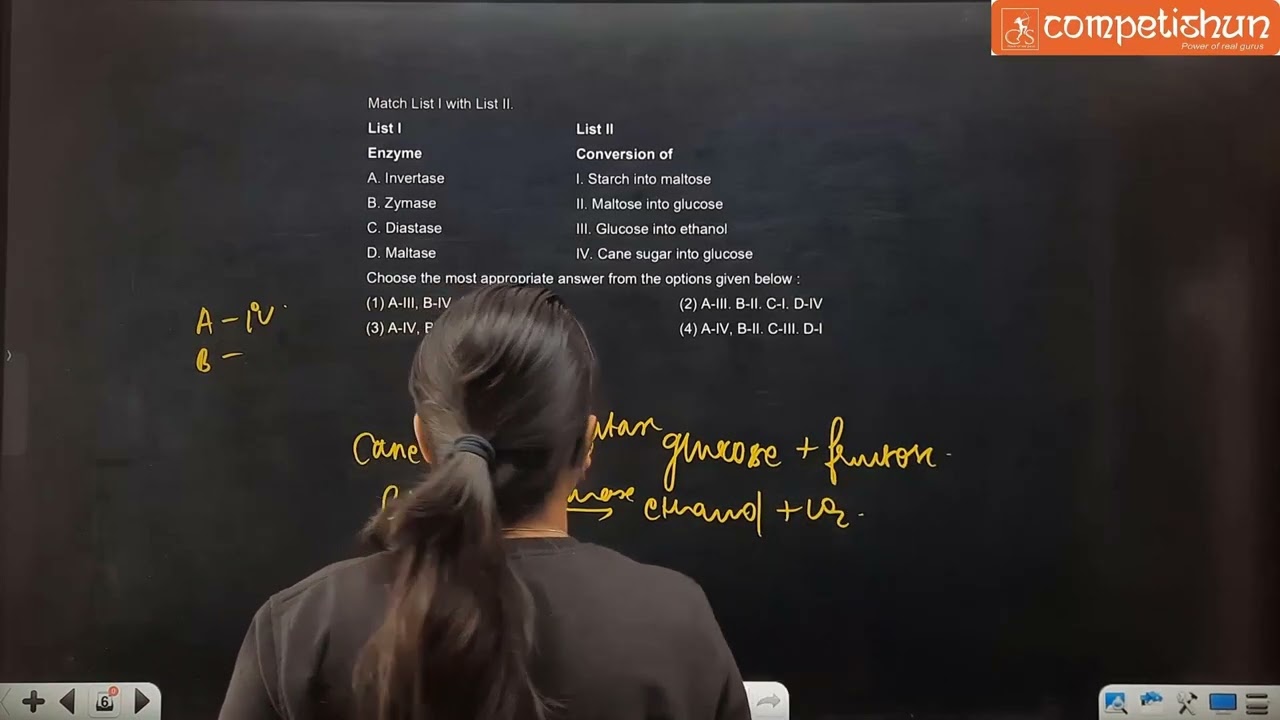 competishun
Power of real gurus
Match List I with List II.
List I List II
Enzyme Conversion of
A. Invertase I. Starch into maltose
B. Zymase II. Maltose into glucose
C. Diastase III. Glucose into ethanol
D. Maltase IV. Cane sugar into glucose
Choose the most appropriate answer from the options given below :
(1) A-III, B-IV (2) A-III. B-II. C-I. D-IV
(3) A-IV, (4) A-IV, B-II. C-III. D-I
A - iv
B -
Cane glucose +
ethanol +
6